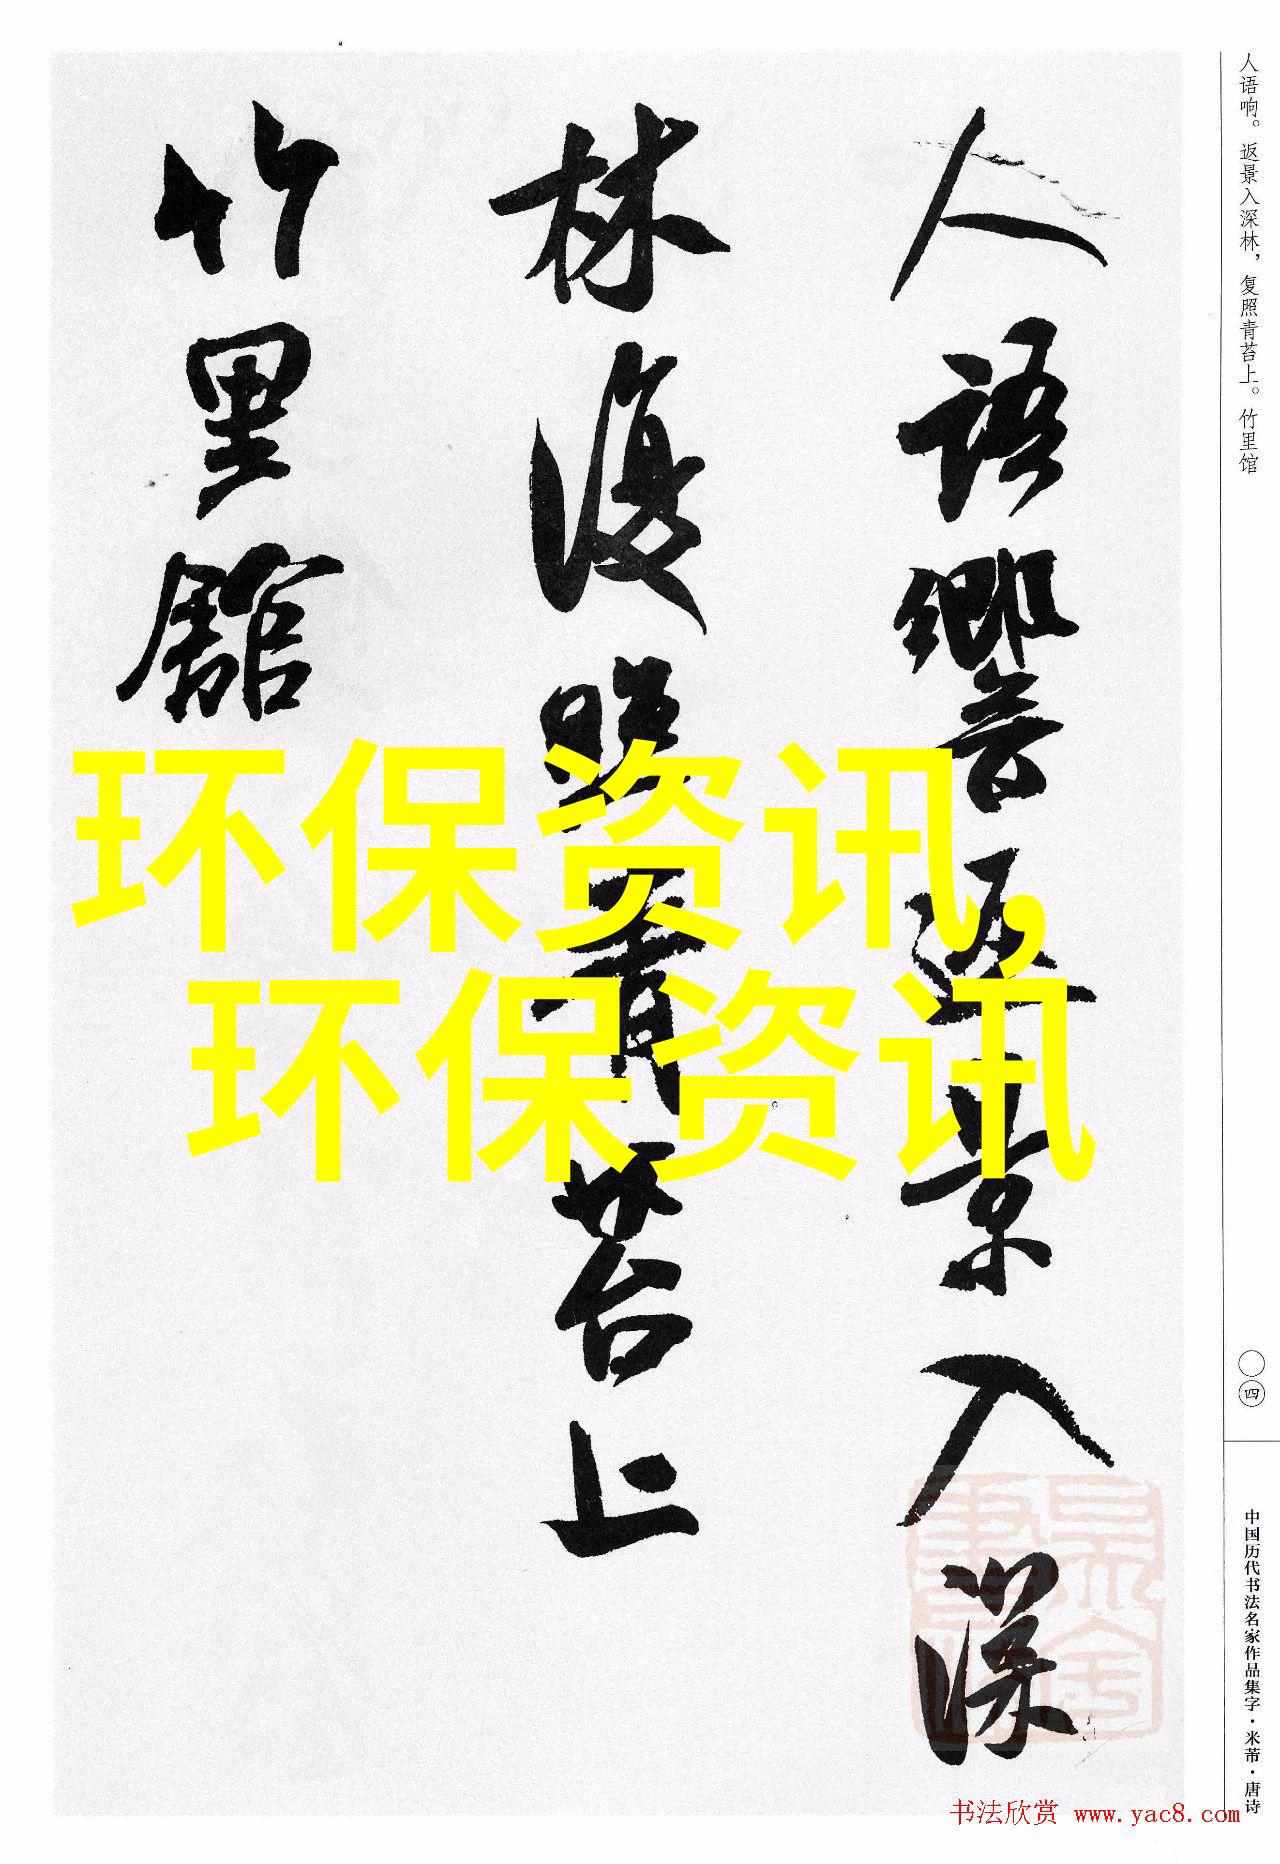 人语响。返景入深林，复照青苔上。竹里馆
人語響返景入深
林復照青苔上
竹里館
环保资讯,
环保资讯
〇四
中国历代书法名家作品集字·米芾·唐诗
书法欣赏 www.yac8.com